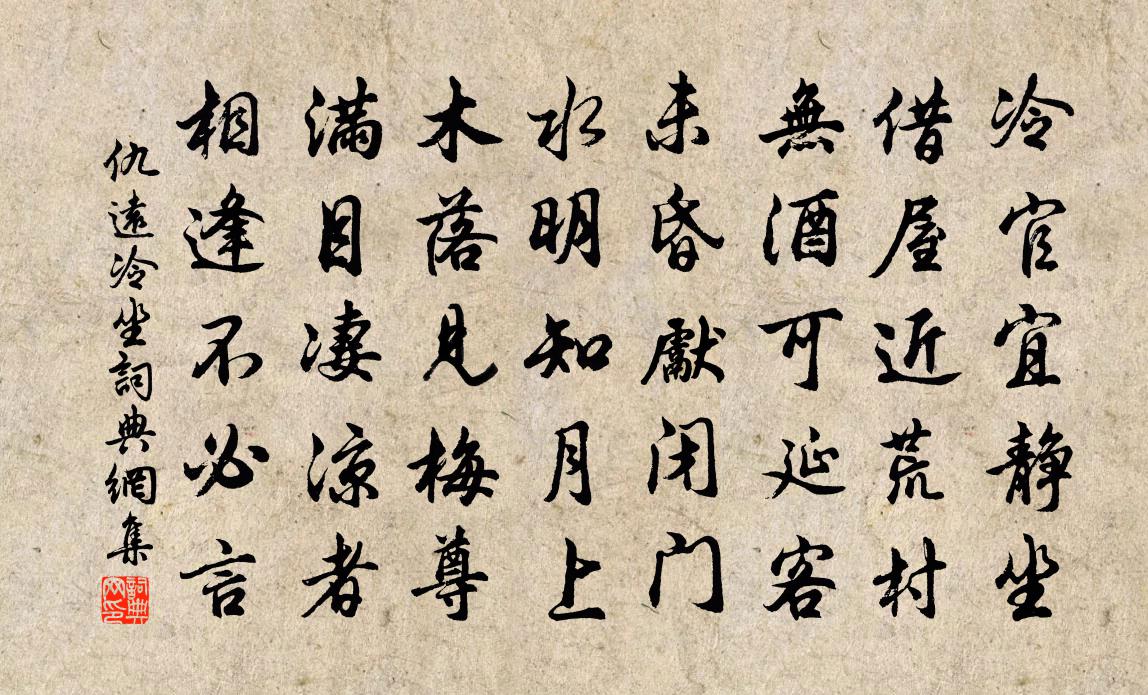 冷官宜靜坐
借屋近荒村
無酒可延客
未昏獻闭门
水明知月上
木落見梅尊
满目凄涼者
相逢不必言
仇遠冷坐詞典網集
詞典網印